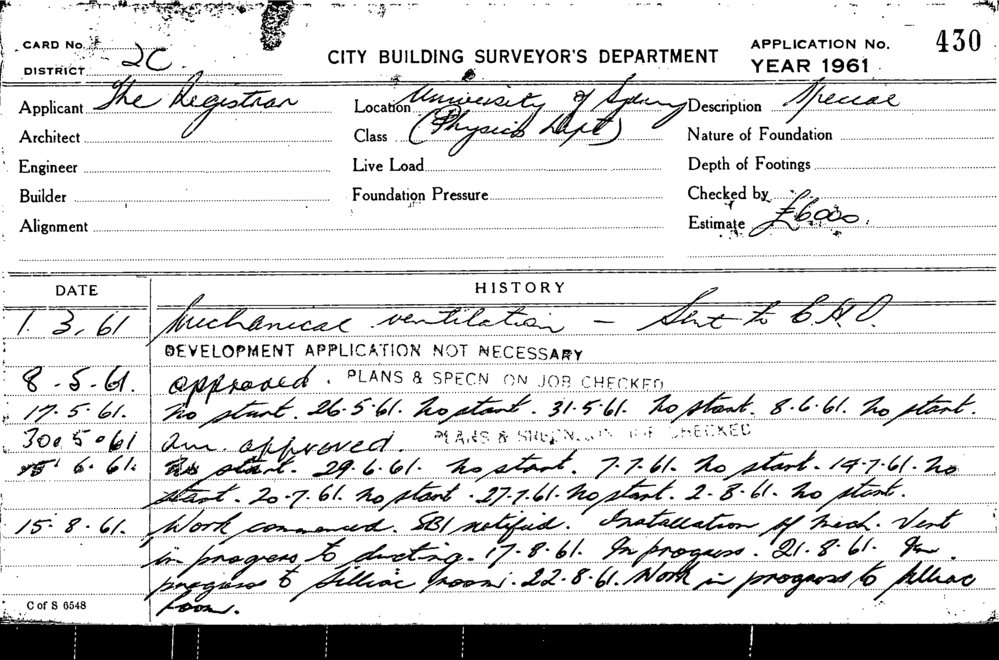 CARD No.
DISTRICT 2C.
CITY BUILDING SURVEYOR'S DEPARTMENT
APPLICATION No. 430
YEAR 1961
Applicant The Registrar
Location University of Sydney
Description Special
Architect
Class (Physics Dept)
Nature of Foundation
Engineer
Live Load
Depth of Footings
Builder
Foundation Pressure
Checked by
Alignment
Estimate £6000.
DATE HISTORY
1. 3. 61 Mechanical ventilation — Sent to C.H.O.
DEVELOPMENT APPLICATION NOT NECESSARY
8 . 5 . 61. approved. PLANS & SPECN ON JOB CHECKED
17. 5. 61. no start. 26.5.61. no start. 31.5.61. no start. 8.6.61. no start.
30. 5. 61 am. approved. PLANS & SPECN. ON JOB CHECKED
15. 6. 61. no start. 29.6.61. no start. 7.7.61. no start. 14.7.61. no
start. 20.7.61. no start. 27.7.61. no start. 2.8.61. no start.
15. 8. 61. Work commenced. SBI notified. Installation of mech. vent
in progress to ducting. 17.8.61. In progress. 21.8.61. In
progress to Silliac room. 22.8.61. Work in progress to Silliac
room.
C of S 6548